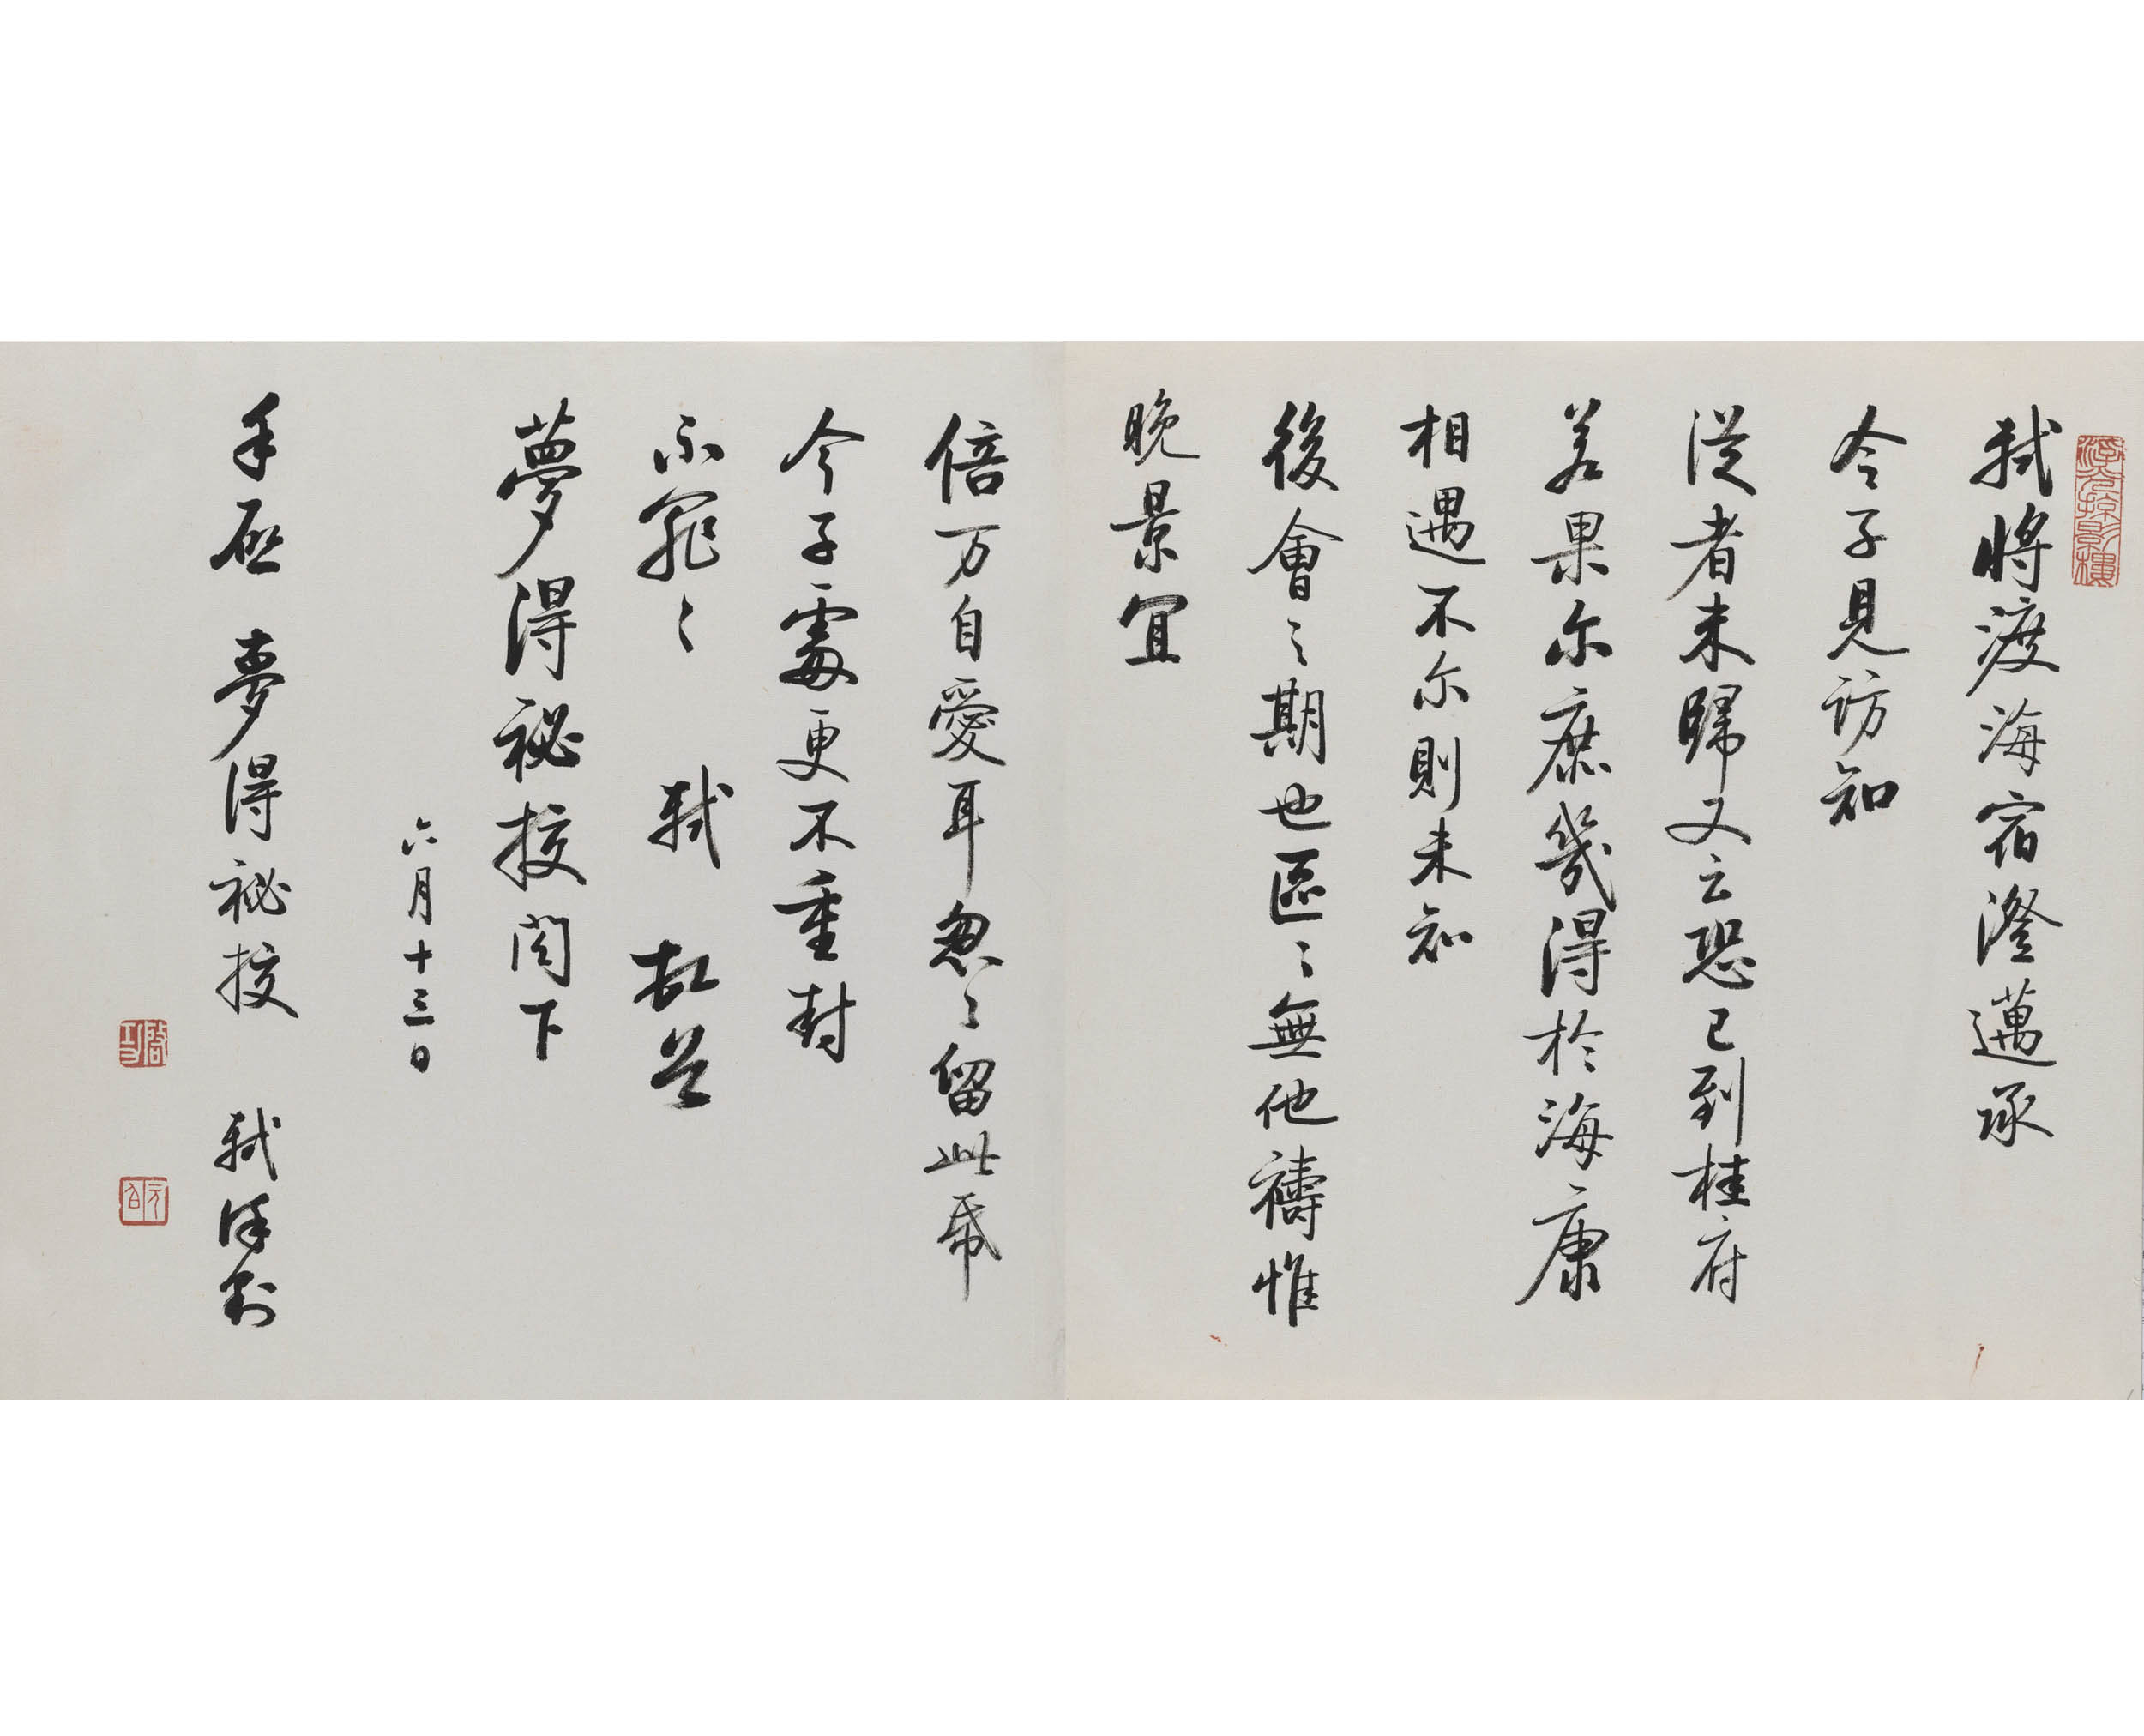 軾將渡海宿澄邁承
令子見訪知
從者未歸又云恐已到桂府
若果尔庶幾得於海康
相遇不尔則未知
後會之期也區〻無他禱惟
晚景宜
倍万自愛耳忽〻留此帋
令子處更不重封
不罪〻 軾 頓首
夢得祕挍閣下
六月十三日
手啟 夢得祕挍 軾 謹封
啟功
元白